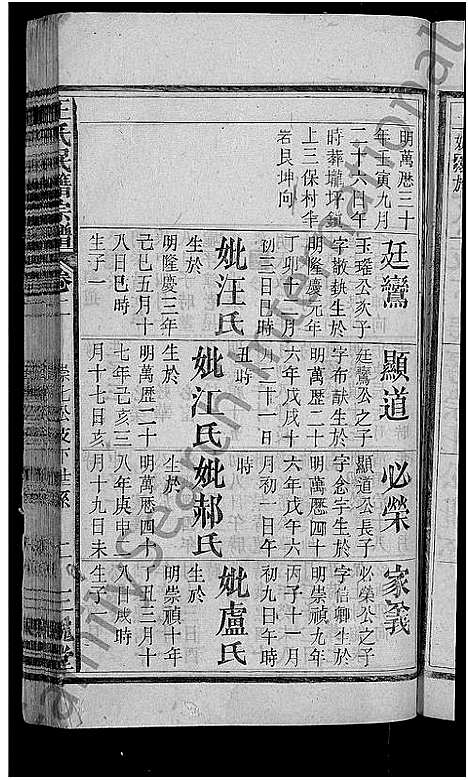 明萬歷三十
年壬寅九月
二十六日午
時葬壠坪鎮
上三保村牛
岩艮坤向
廷鸞
玉瓘公次子
字敬執生於
明隆慶元年
丁卯十一月
初三日巳時
妣汪氏
生於
明隆慶三年
己巳五月十
八日巳時
生子一
顯道
廷鸞公之子
字布猷生於
明萬歷二十
六年戊戌十
月三十一日
丑時
妣江氏
生於
明萬歷二十
七年己亥三
月十七日亥
必榮
顯道公長子
字念宇生於
明萬歷四十
六年戊午六
月初一日午
時
妣郝氏
生於
明萬歷四十
八年庚申二
月十九日未
家義
必榮公之子
字信卿生於
明崇禎九年
丙子十一月
初九日午時
妣盧氏
生於
明崇禎十年
丁丑三月十
八日戌時
生子一
王氏宗譜
卷二
Family Search International